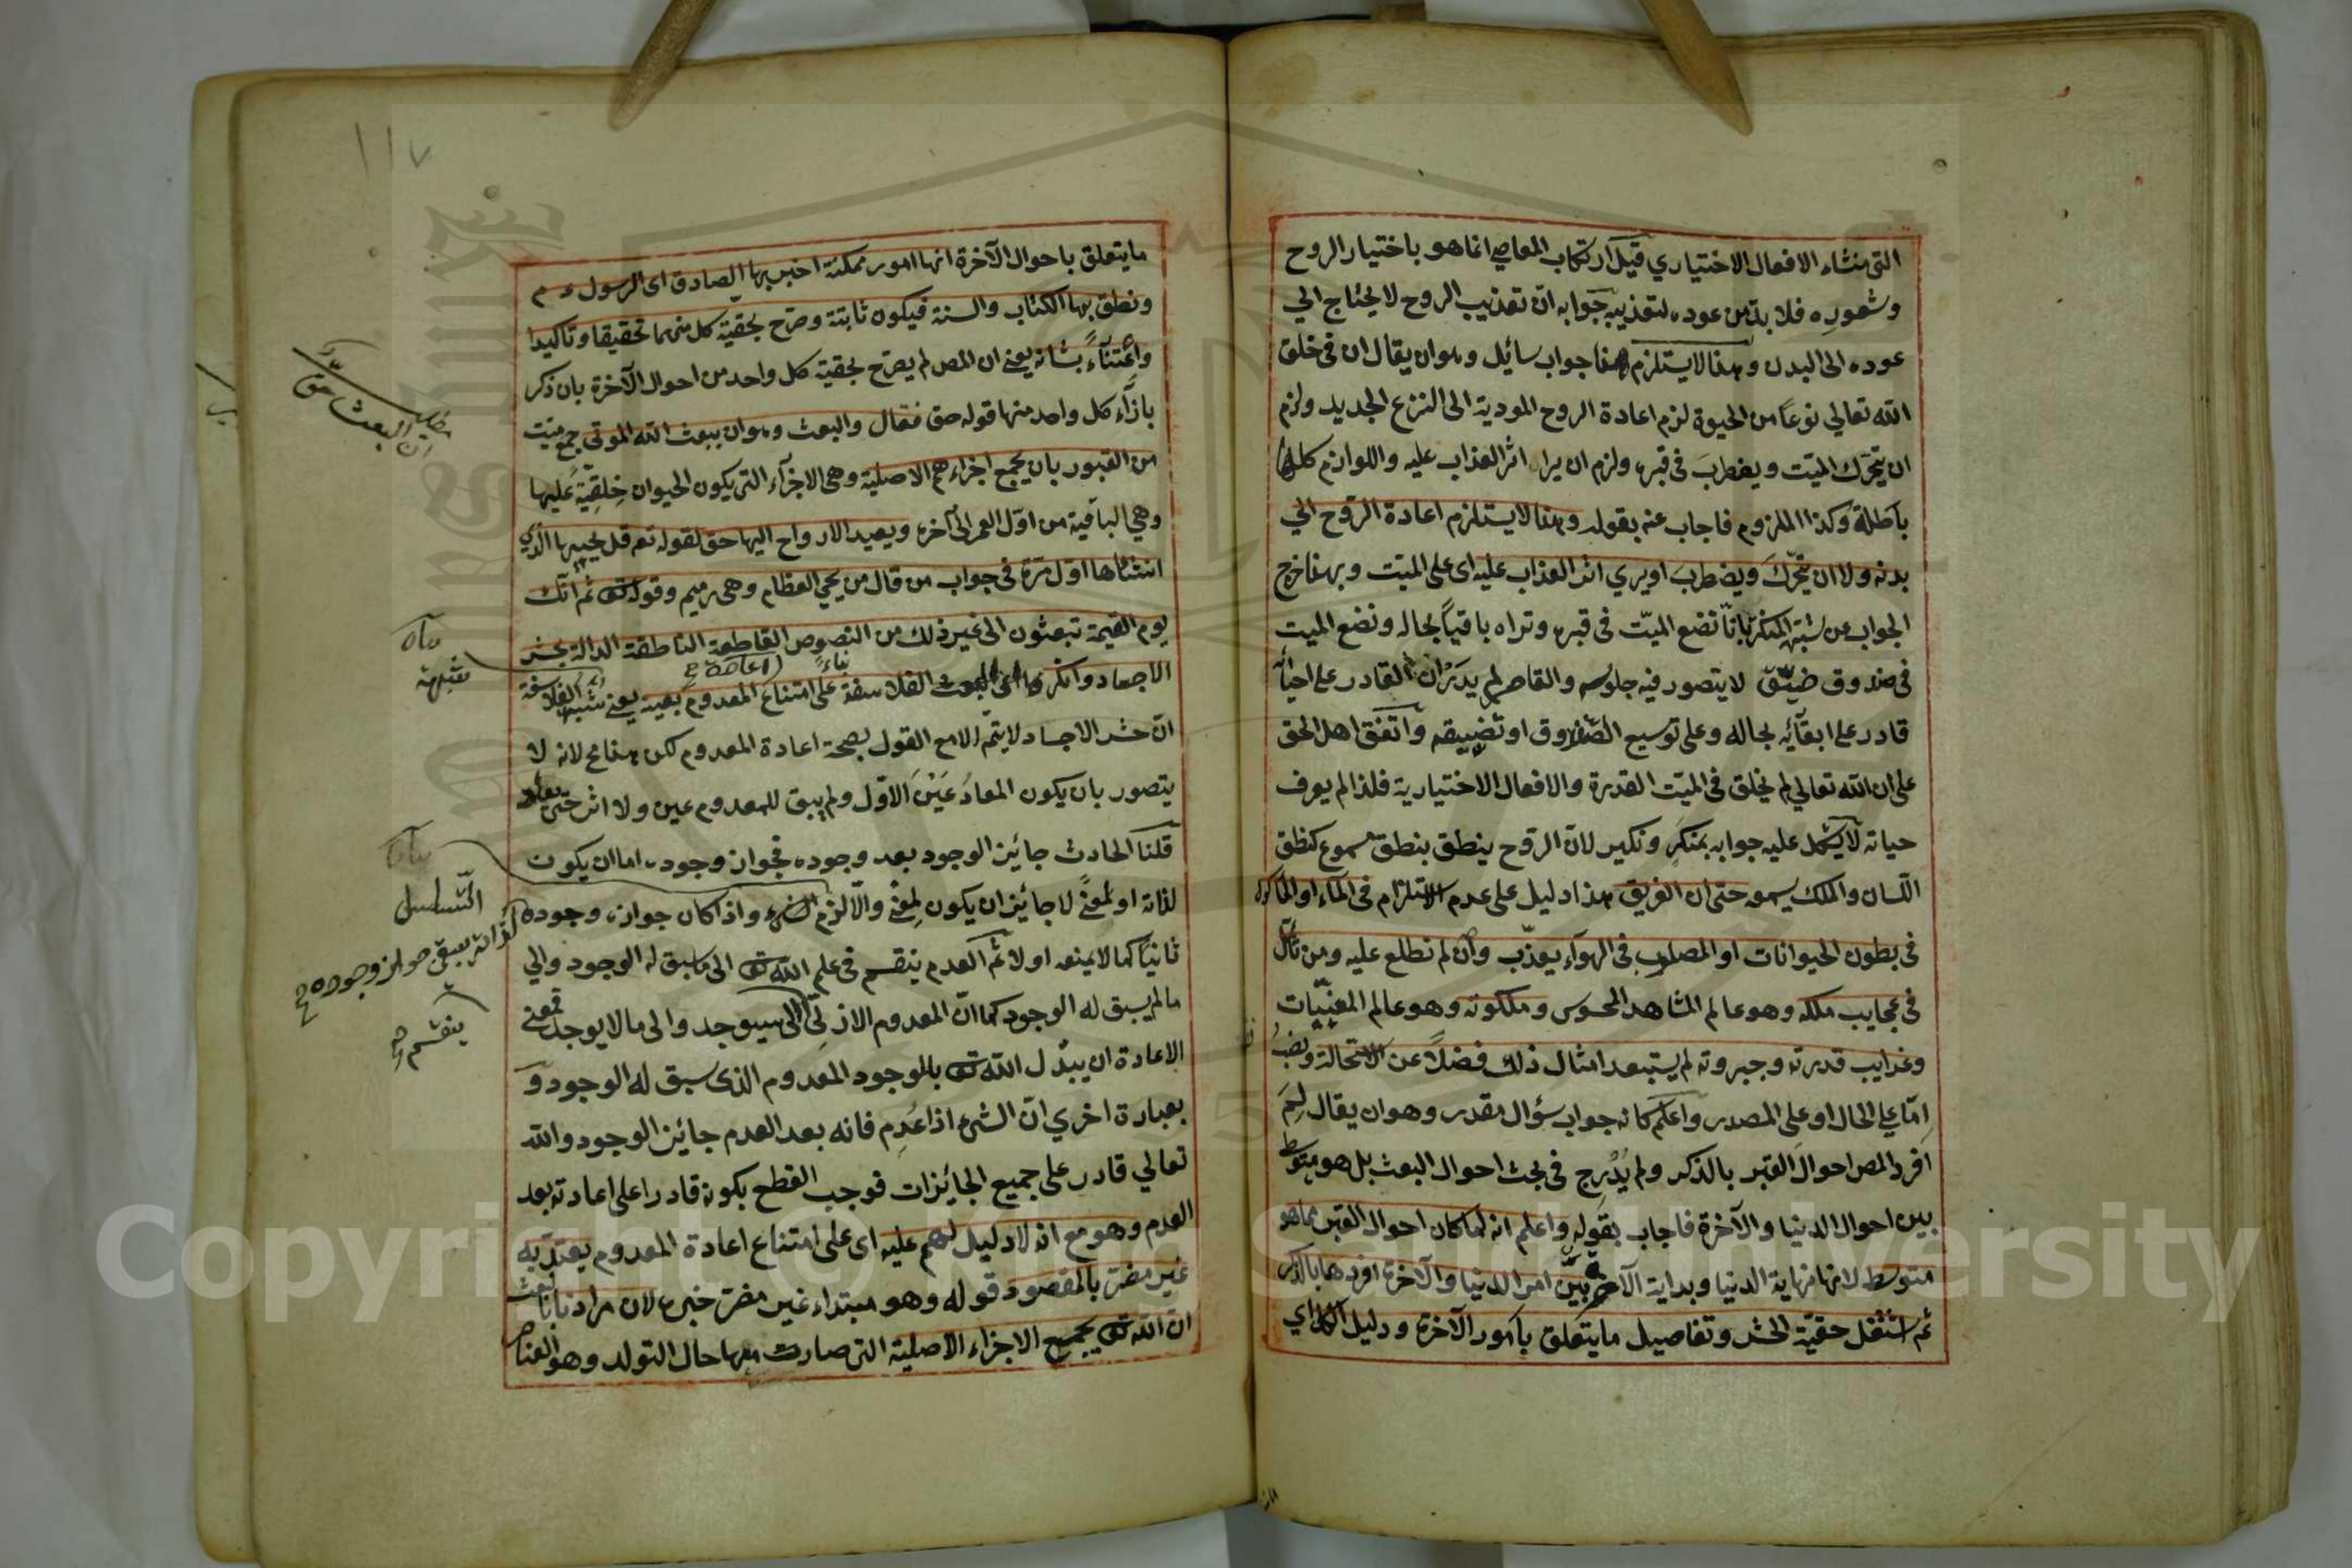 التى منشاء الافعال الاختياري قيل ارتكاب المعاصي انما هو باختيار الروح
وشعوره فلا بد من عوده لتعذيبه جوابه ان تعذيب الروح لا يحتاج الي
عوده الى البدن وهذا لايستلزم هذا جواب سائل وهوان يقال ان فى خلق
الله تعالي نوعًا من الحيوة لزم اعادة الروح المودية الى النزع الجديد ولزم
ان يتحرك الميّت ويضطربَ فى قبره ولزم ان يرا اثر العذاب عليه واللوازم كلها
باطلة وكذا الملزوم فاجاب عنه بقوله وهذا لايستلزم اعادة الروح الي
بدنه ولا ان يتحرّكَ ويضطربَ اويري اثر العذاب عليه اى على الميّت وبهذا خرج
الجواب عن شبهة المنكر بانّا نضع الميّت فى قبره وتراه باقياً بحاله ونضع الميت
فى صندوق ضيّق لا يتصور فيه جلوسه والقاصر لم يدر ان القادر على احيائه
قادر على ابقائه بحاله وعلى توسيع الصندوق او تضييقه واتفق اهل الحق
على ان الله تعالي لم يخلق فى الميّت القدرة والافعال الاختيارية فلذا لم يعرف
حياته لايشكل عليه جوابه بمنكرٍ ونكير لانّ الروح ينطق بنطق مسموع كنطق
اللّسان والملك يسمعه حتى ان الغريق هذا دليل على عدم الاستلزام فى الماء او المأكول
فى بطون الحيوانات او المصلوب فى الهوآء يعذّب وان لم نطلع عليه ومن تأمّل
فى عجايب ملكه وهو عالم المشاهد المحسوس وملكوته وهو عالم المغيّبات
وغرايب قدرته وجبروته لم يستبعد امثال ذلك فضلًا عن الاستحالة ونصبُه
اِمّا علي الحال او على المصدر واعلم كانه جواب سؤال مقدر وهو ان يقال لِمَ
افرد المص احوالَ القبر بالذكر ولم يُدْرِج فى بحث احوال البعث بل هو متوسّط
بين احوال الدنيا والآخرة فاجاب بقوله واعلم انه لما كان احوال القبر مما هو
متوسط لانها نهاية الدنيا وبداية الآخرة بيّن امر الدنيا والآخرة افردها بالذكر
ثم اشتغل حقيّة الحشر وتفاصيل مايتعلق بامور الآخرة ودليل الكل اي
١١٧
مايتعلق باحوال الآخرة انها امور ممكنة اخبر بها الصادق اى الرسول ءم
ونطق بها الكتاب والسنة فيكون ثابتة وصرّح بحقية كل منهما تحقيقا وتاكيدا
واعتناءً بشانه يعنى ان المص لم يصرّح بحقية كل واحد من احوال الآخرة بان ذكر
بازآء كل واحد منها قوله حق فقال والبعث وهوان يبعث الله الموتى جمع ميّت
من القبور بان يجمع اجزاءهم الاصلية وهى الاجزآء التى يكون الحيوان خِلقِيّةً عليها
وهي الباقية من اوّل العمر الى آخره ويعيد الارواح اليها حق لقوله تعم قل يحييها الذي
انشاها اوّل مرّة فى جواب من قال من يحي العظام وهى رميم وقوله تع ثم انّك
يوم القيمة تبعثون الى غير ذلك من النصوص القاطعة الناطقة الدالة بحشر
الاجساد وانكره اى البعث الفلاسفة بناءً على امتناع اعادة المعدوم بعينه يعنى شبهة الفلاسفة
انّ حشر الاجساد لايتمّ الا مع القول بصحة اعادة المعدوم لكن هذا مح لانه لا
يتصور بان يكون المعادُ عَيْنَ الاوّل ولم يبق للمعدوم عين ولا اثر حتى يعاد
قلنا الحادث جائيز الوجود بعد وجوده فجواز وجوده اما ان يكون
لذاته او لمعنًى لا جائيز ان يكون لمعنًى والّا لزم التسلسل واذا كان جواز وجوده
ثانيًا كما لايمنعه اولا ثم العدم ينقسم فى علم الله تع الى ماسبق له الوجود والي
مالم يسبق له الوجود كما انّ المعدوم الازلى الى ما سيوجد والى ما لا يوجد فمعنى
الاعادة ان يبدل الله تع بالموجود المعدوم الذى سبق له الوجود و
بعبارة اخري انّ الشئ اذا عُدِم فانه بعد العدم جائيز الوجود والله
تعالي قادر على جميع الجائيزات فوجب القطع بكونه قادرا على اعادته بعد
العدم وهو مع انه لا دليل لهم عليه اى على امتناع اعادة المعدوم يعتدّ به
غير مضرّ بالمقصود قوله وهو مبتداء غير مضرّ خبره لان مرادنا
ان الله تع يجمع الاجزاء الاصلية التى صارت معها حال التولد وهو العناصر
ان البعث حق
التّسلسل
يسبق جواز وجوده
ينقسم
Copyright © King Saud University